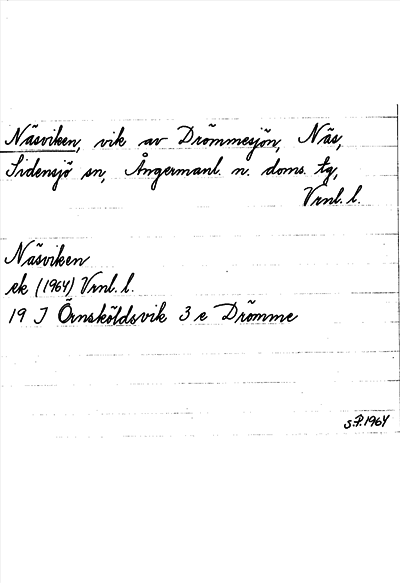 Näsviken, vik av Drömmesjön, Näs,
Sidensjö sn, Ångermanl. n. doms. tg,
Vrnl. l.
Näsviken
ek (1964) Vrnl. l.
19 J Örnsköldsvik 3 e Drömme
S.P. 1964